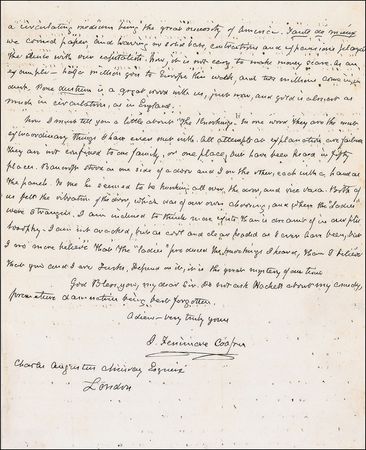 a circulating medium being the great necessity of America. Faute de mieux
we coined paper and having no solid base, contractions and expansions played
the deuce with our capitalists. Now, it is not easy to make money scarce. As an
example - half a million goes to Europe this week, and two millions come in in
dust. None is a great word with us, just now, and gold is almost as
much in circulation, as in England.
Now I must tell you a little about "The Knockings." In one word they are the most
extraordinary things I have ever met with. All attempts at explanation are failures
They are not confined to one family, or one place, but have been heard in fifty
places. Bancroft stood on one side of a door and I on the other, each with a hand on
the panel. To me he seemed to be knocking all over the door, and vice versa. Both of
us felt the vibration of the door, which was of our own choosing, and where the "ladies"
were strangers. I am inclined to think more of it than is dreamed of in our philo-
sophy. I am not cracked, but as cool and clear headed as I ever have been, but
I no more believe that the "ladies" produced the knockings I heard, than I believe
that you and I are Turks. Depend on it, it is the great mystery of our time
God Bless you, my dear Sir. Do not ask Hackett about my comedy,
premature damnation being best forgotten.
Adieu - very truly yours
J. Fenimore Cooper
Charles Augustus Murray Esquire
London